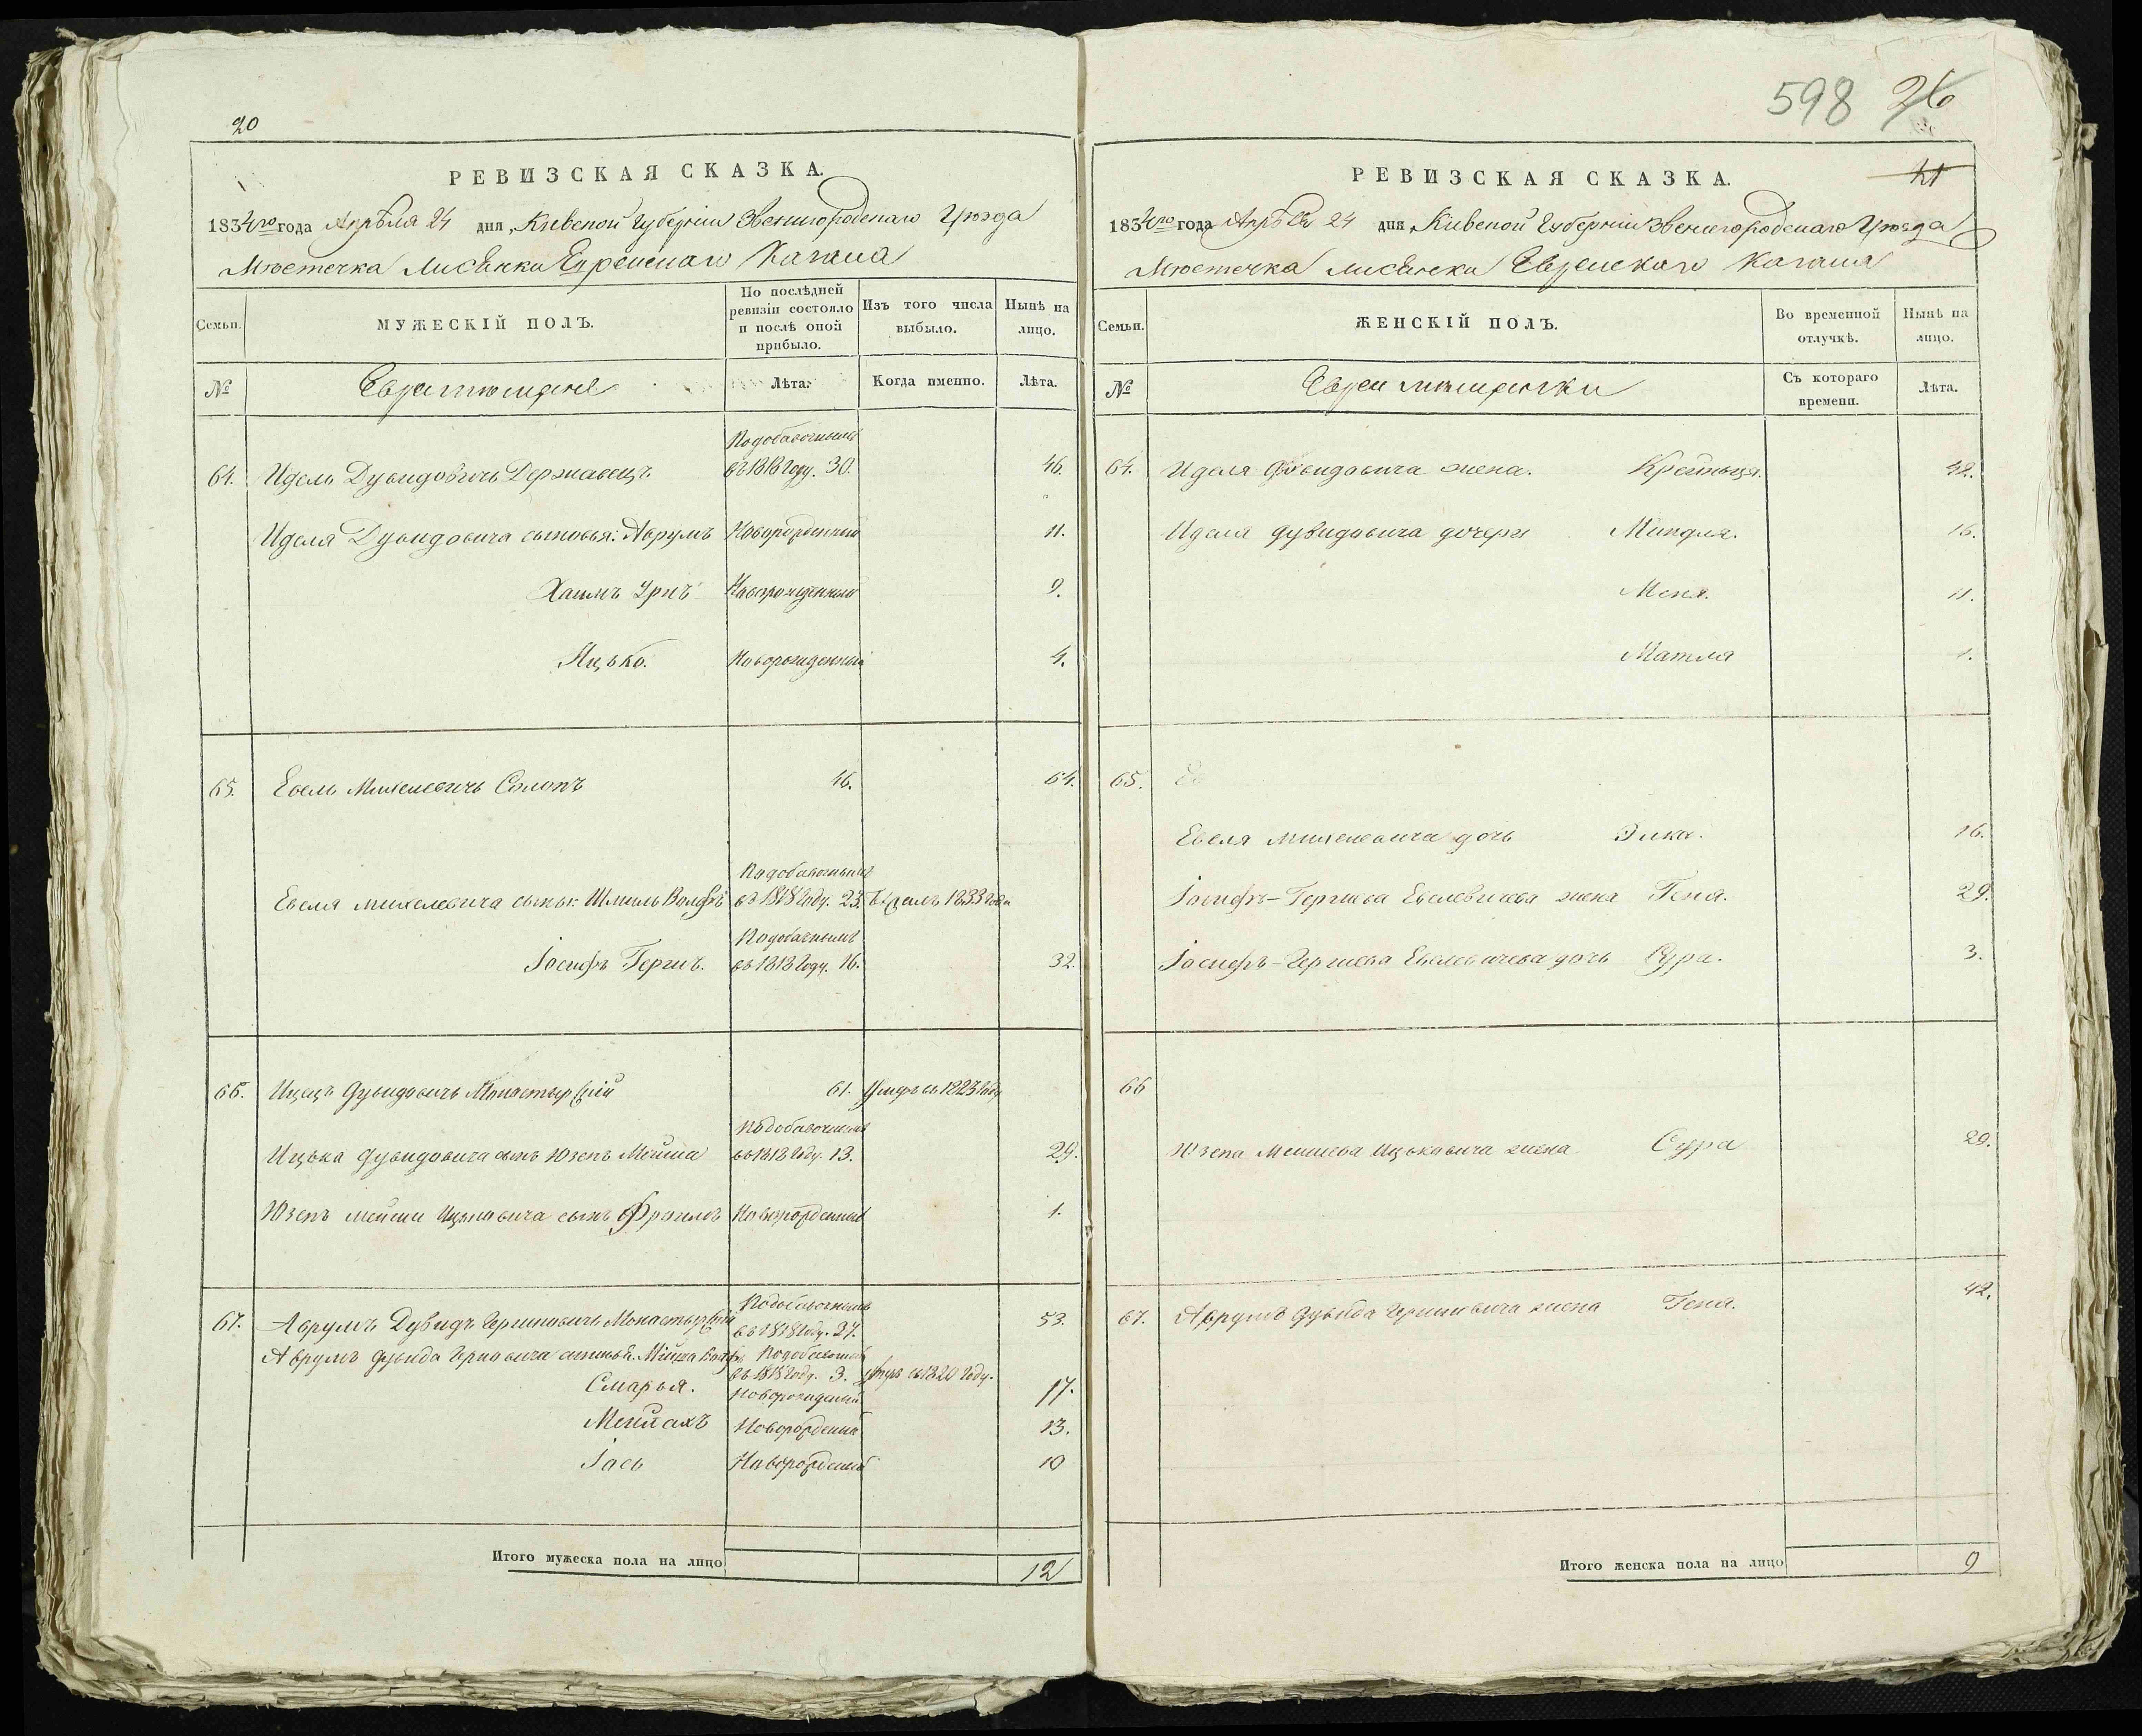 20
РЕВИЗСКАЯ СКАЗКА.
1834го года Апрѣля 24 дня, Кіевской Губерніи Звенигородскаго Уѣзда
Мѣстечка Лисянки Еврейскаго Кагала
Семьи.
МУЖЕСКІЙ ПОЛЪ.
По послѣдней ревизіи состояло и послѣ оной прибыло.
Изъ того числа выбыло.
Нынѣ на лицо.
№
Евреи мѣщане
Лѣта.
Когда именно.
Лѣта.
64. Идель Дувидовичъ Державецъ Подобавочнымъ въ 1818 году. 30. 46.
Иделя Дувидовича сыновья: Аврумъ Новорожденный 11.
Хаимъ Новорожденный 9.
Ицько. Новорожденный 4.
65. Евель Михелевичъ 46. 64.
Евеля Михелевича сынъ: Шмиль Волфъ Подобавочнымъ въ 1818 году. 23. 1833 года
Іосифъ Гершъ. Подобавочнымъ въ 1818 году. 16. 32.
66. Ицекъ Дувидовичъ Монастырскій 61. Умеръ въ 1823 году
Ицька Дувидовича сынъ Юзепъ Мейша Подобавочнымъ въ 1818 году. 13. 29.
Юзепъ Мейши Ицьковича сынъ Фроимъ Новорожденный 1.
67. Аврумъ Дувидъ Гершковичъ Монастырскій Подобавочнымъ въ 1818 году. 37. 53.
Аврумъ Дувида Гершковича сыновья. Подобавочнымъ въ 1818 году. 3. Умеръ въ 1820 году.
Смарья. Новорожденный 17.
Новорожденный 13.
Іось Новорожденный 10
Итого мужеска пола на лицо 12
598 26
21
РЕВИЗСКАЯ СКАЗКА.
1834го года Апрѣля 24 дня, Кіевской Губерніи Звенигородскаго Уѣзда
Мѣстечка Лисянки Еврейскаго Кагала
Семьи.
ЖЕНСКІЙ ПОЛЪ.
Во временной отлучкѣ.
Нынѣ на лицо.
№
Евреи мѣщанки
Съ котораго времени.
Лѣта.
64. Иделя Дувидовича жена. Крейнця. 42.
Иделя Дувидовича дочери Миндля. 16.
Меня. 11.
Матля 1.
65. Ев
Евеля Михелевича дочь Элка. 16.
Іосифъ-Гершева Евелевичева жена Геня. 29.
Іосифъ-Гершева Евелевичева дочь Сура. 3.
66
Юзепа Мейшева Ицьковича жена Сура 29.
67. Аврумъ Дувида Гершковича жена Геня. 42.
Итого женска пола на лицо 9